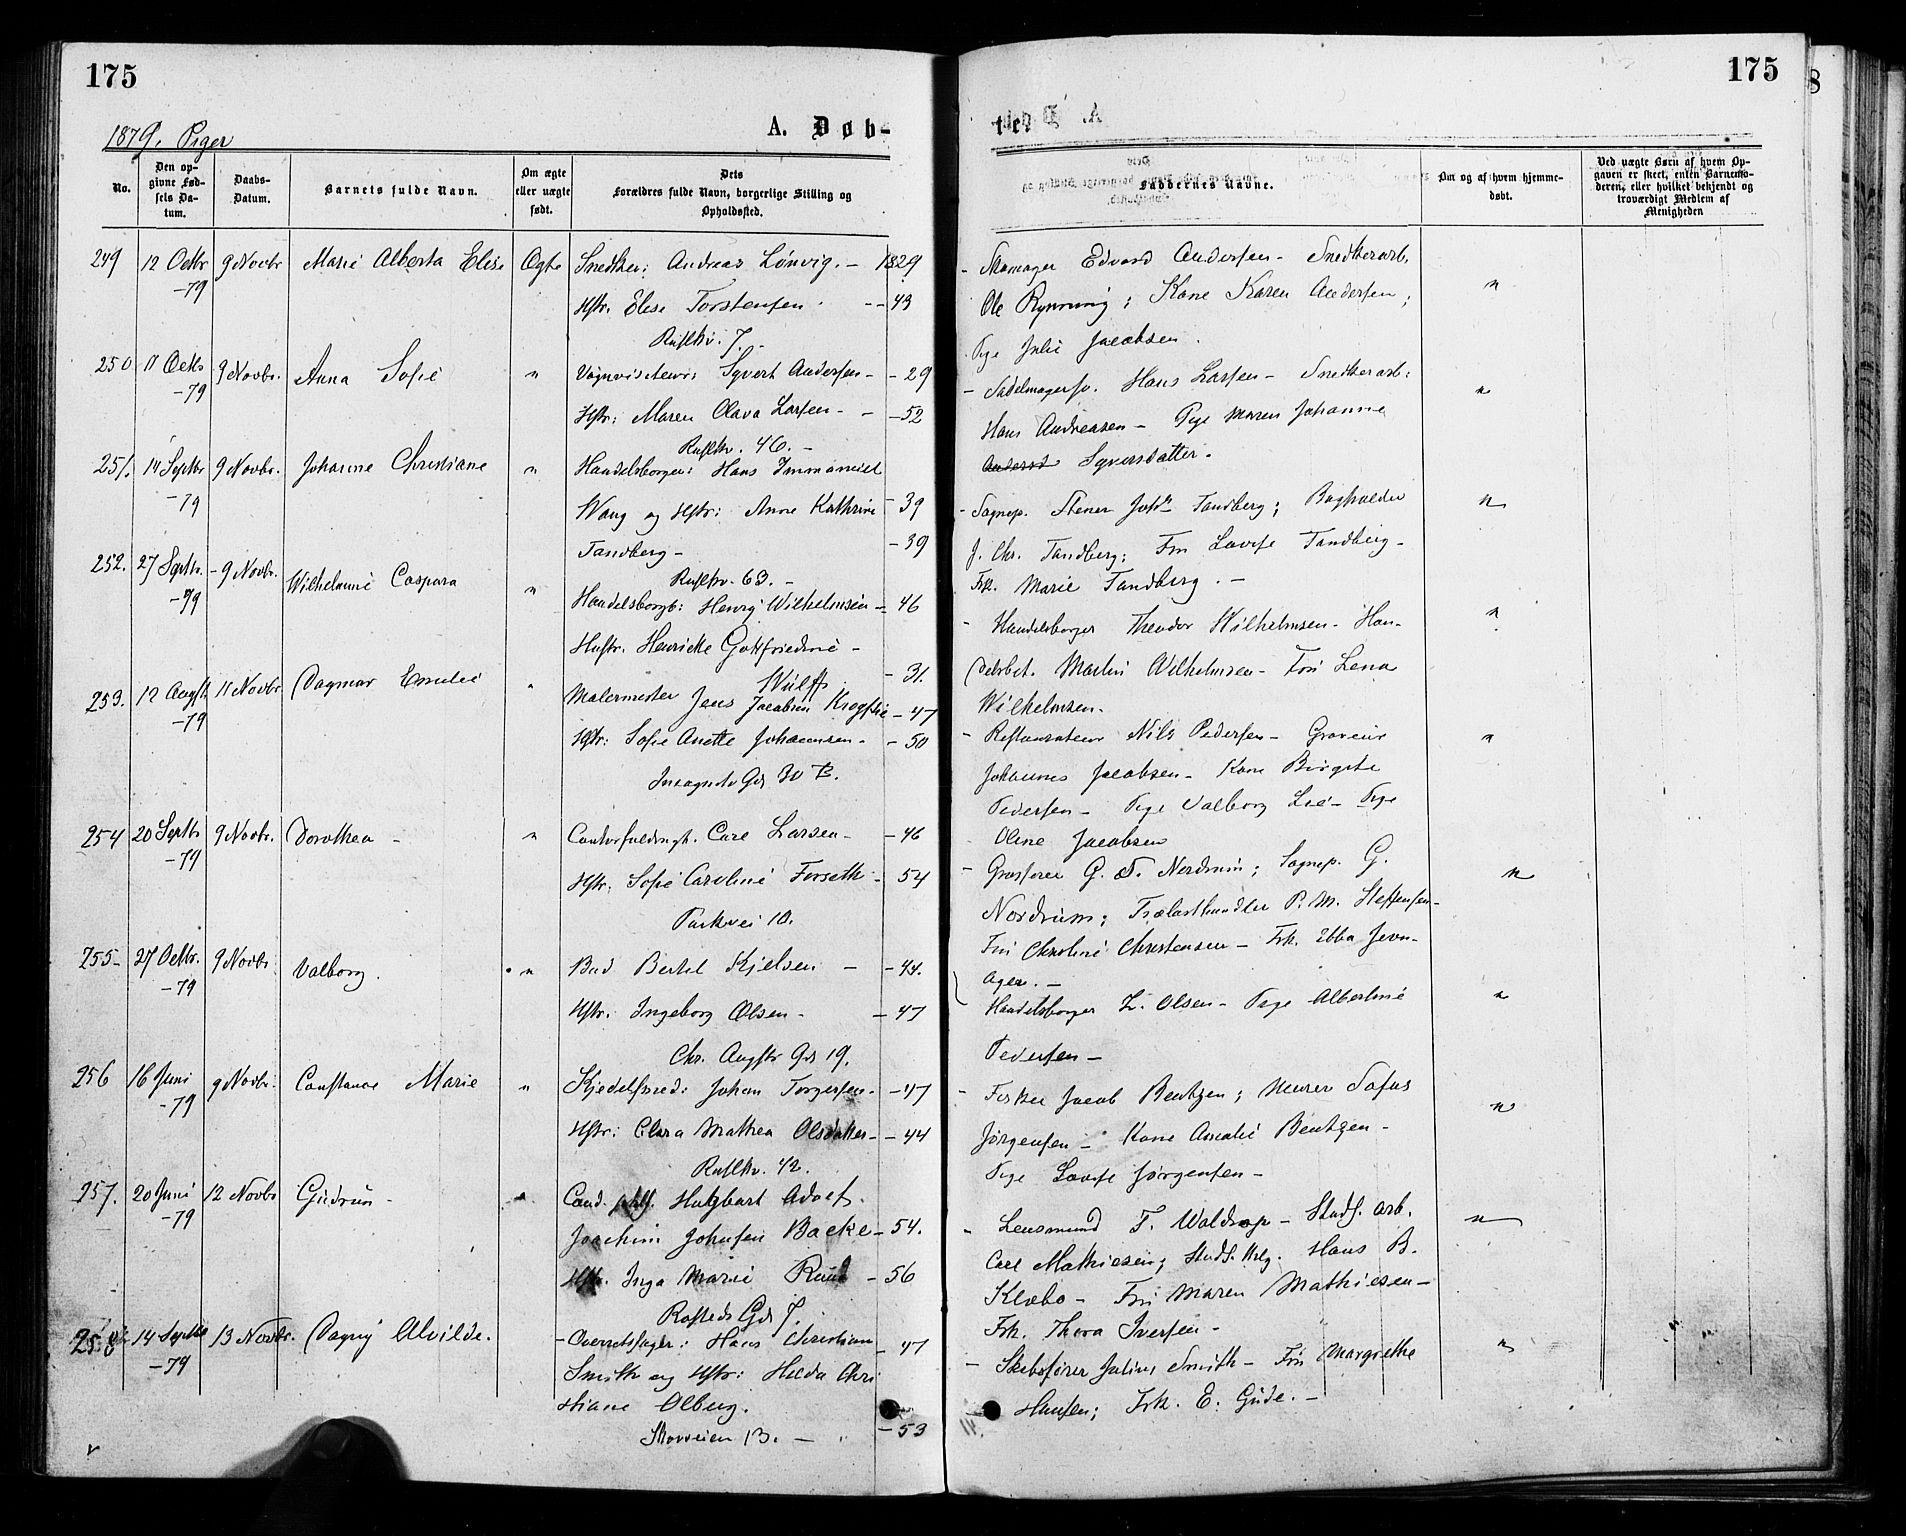 175
1879. Piger
A. Døb-
No.
Den op-
givne Fød-
sels Da-
tum.
Daabs-
Datum.
Barnets fulde Navn.
Om ægte
eller uægte
født.
Dets
Forældres fulde Navn, borgerlige Stilling og
Opholdssted.
249 12 Octbr 9 Novbr Marie Alberta Elise Ægte Snedker: Andreas Lønvig. - 1829
-79
Hstr. Elise Torstensen -- 43
Rustkv. 7.-
250 11 Octb 9 Novbr. Anna Sofie " Vognvisiteur: Syvert Andersen - - 29
-79
Hstr: Maren Olava Larsen - - 52
Rustkv. 46. -
251. 14 Septbr 9 Novbr. Johanne Christiane " Handelsborger: Hans Immanuel
-79
Wang og Hstr: Anne Kathrine - 39
Tandberg - - 39
Rustkv. 63. -
252. 27 Septbr. - 9 Novbr. Wilhelmine Caspara " Handelsborgb: Henry Wilhelmsen - 46
-79
Hustr. Henriette Gottfriedine -
Wulff - 31.
253. 12 Augst 11 Novbr Dagmar Emilie " Malermester Jens Jacobsen - 47
-79
Hstr: Sofie Anette Johannsen - - 50
Incognito Gd 30 B.
254 20 Septbr 9 Novbr. Dorothea - " Contorfuldmgt. Carl Larsen - - 46
-79
Hstr: Sofie Caroline Forseth - 54
Parkvei 10.
255- 27 Octbr. 9 Novbr Valborg. " Bud Bertel Kjelsen - - 44.
-79
Hstr: Ingeborg Olsen - - 47
Chr. Augsts Gd 19.
256 16 Juni 9 Novbr. Constance Marie " Kjedelsmed: Johan Torgersen - - 47
-79
Hstr: Clara Mathea Olsdatter - - 44
Rustkv. 42.
257. 20 Juni 12 Novbr Gudrun - " Cand. Adolf
-79
Joachim Johnsen Backe - 54.
Hstr. Inga Marie Ruud - 56
Rosteds Gd 7.
258 14 Septbr 13 Novbr. Dagny Alvilde. - Overretssager: Hans Christian - 47
-79
Smith og Hstr: Hilda Chri
stiane Olberg.
Skovveien 13. - - 53
175
ter.
Faddernes Navne.
Om og af hvem hjemme-
døbt.
Ved uægte Børn af hvem Op-
gaven er skeet, enten Barnemo-
deren, eller hvilket bekjendt og
troværdigt Medlem af
Menigheden
- Skomager Edvard Andersen - Snedkerarb.
Ole Rynning; Kone Karen Andersen; "
Pige Julie Jacobsen.
- Sadelmagersv. Hans Larsen - Snedkerarb: "
Hans Andreasen - Pige Maren Johanne
Syversdatter.
- Sognep. Stener Johs Tandberg; Bogholder "
J. Chr. Tandberg; Fru Lovise Tandberg -
Frk. Marie Tandberg. -
- Handelsborger Theodor Wilhelmsen - Han- "
delsbet. Martin Wilhelmsen - Fru Lena
Wilhelmsen.
- Restaurateur Nils Pedersen - Graveur "
Johannes Jacobsen - Kone Birgite
Pedersen - Pige Valborg Lie - Pige
Oline Jacobsen
- Grosserer G. T. Nordrum; Sognep. G. "
Nordrum; Trælasthandler P. M. Steffensen -
Fru Christine Christensen - Frk. Ebba Jevn-
ager. -
Handelsborger L. Olsen - Pige Albertine "
Pedersen -
- Fisker Jacob Bentzen; Murer Sofus "
Jørgensen - Kone Amalie Bentzen -
Pige Lovise Jørgensen -
- Lensmand F. Waldrop - Stads. arb. "
Carl Mathiesen; Hans B.
Klæbo - Fru Maren Mathiesen -
Frk. Thora Iversen -
- Skibsfører Julius Smith - Fru Margrethe "
Hansen; Frk. E. Gude. -